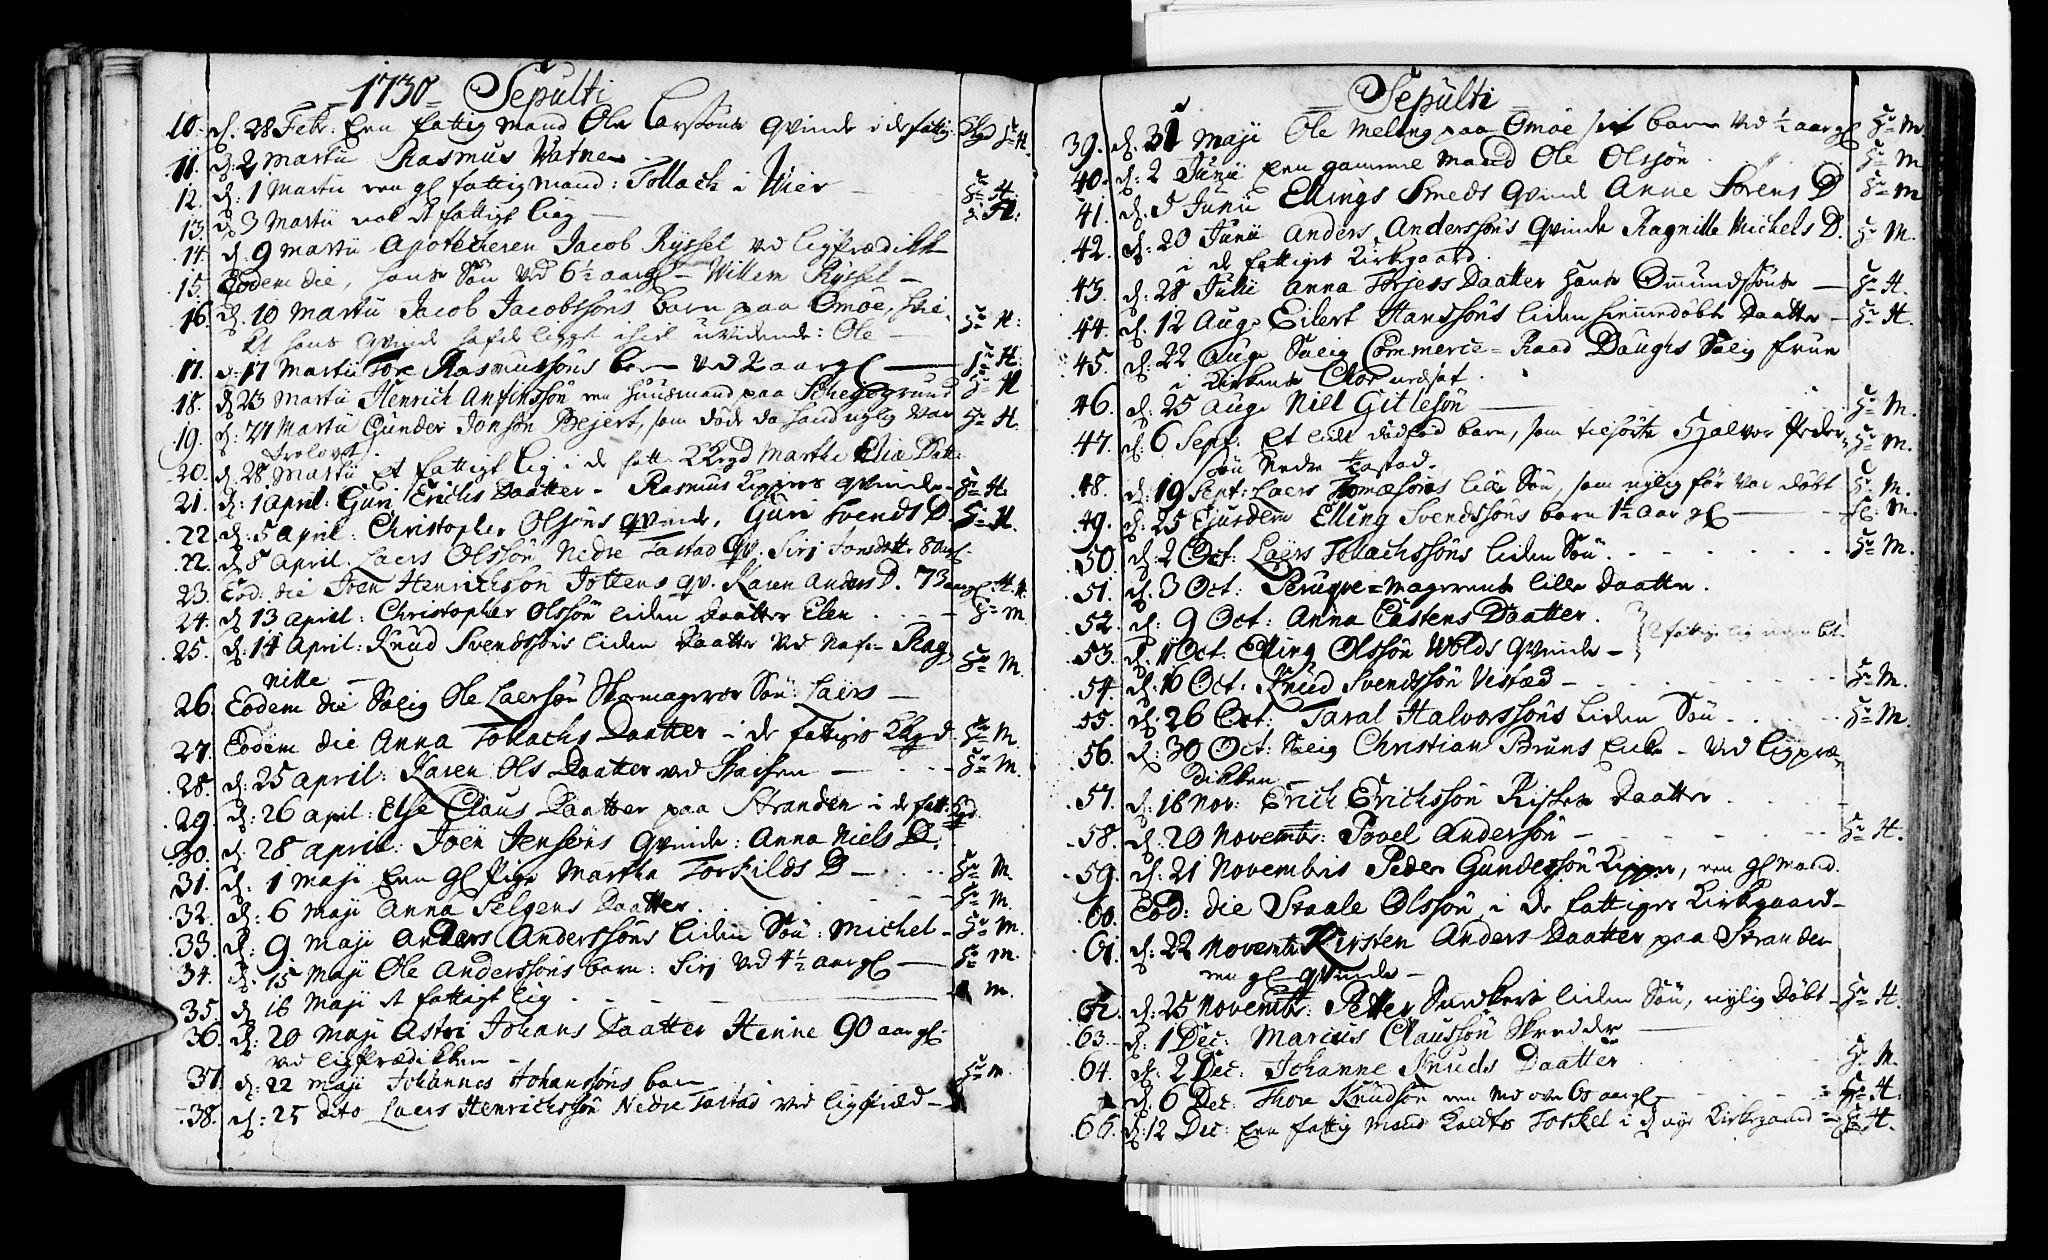 1730 Sepulti
10. d. 28 Febr: Een fattig mand Ole Larssøns qvinde i de fattig: Kgd Hr H.
11. d: 2 Martii Rasmus Watne
12. d: 1 Martii een gl fattig mand: Tollach i Wier — Hr H.
13. d. 3 Martii nok et fattigt liig — H:
14. d. 9 Martii Apotecheren Jacob Ryssel ved ligprædiken
15. Eodem die, hans Søn ved 6½ aargl — Willem Ryssel —
16. d. 10 Martii Jacob Jacobssøns barn paa Omøe,
hans qvinde hafde liggt ihiel uvidende: Ole — Hr H:
17. d: 17 Martii Tore Rasmussøns barn ved 2 aargl — Hr H:
18. d 23 Martii Henrich Anfinssøn een huusmand paa — Hr H
19. d: 27 Martii Gunder Jonsøn Bejert, som døde da hand nylig var Hr H.
Trolovet
20. d. 28 Martii Et fattigt lig i de fatt: Kgd Marthe Datt:
21. d: 1 April: Guri Erichs Daatter — Rasmus Kippers qvinde — Hr H.
22. d: 5 April: Christopher Olssøns qvinde, Guri Svends D. Hr H.
22. d 5 April. Laers Olssøn Nedre Tastad qv. Sirj Jonsdatter 80 aargl.
23. Eod: die Joen Henrichsøn Joltens qv. Karen Anders D. 73 aargl H.
24. d 13 April: Christopher Olssøn liden Daatter Elen — Hr M.
25. d: 14 April: Knud Svendssøns liden Daatter ved nafn Rag,
nille — Hr M.
26. Eodem die Sälig Ole Laersøn Skomagers Søn: Laers —
27. Eodem die Anna Tollachs Daatter — i de fattiges Kkgd Hr M.
28. d: 25 April: Karen Ols Daatter ved — Hr M.
29. d: 26 April: Else Claus Daatter paa Stranden i de fatt: Kgd.
30. d: 28 April: Joen Jensøns qvinde: Anna Niels D.
31. d: 1 Maji Een gl Pige Martha Torkilds D — Hr M.
32. d: 6 Maji Anna Selgens Daatter — Hr M.
33. d: 9 Maji Anders Anderssøns liden Søn: Michel — Hr M.
34. d. 15 Maji Ole Anderssøns barn: Sirj ved 4½ aargl — Hr M.
35. d 16 Maji et fattigt liig — M.
36. d: 20 Maji Astri Johans Daatter Henne 90 aargl.
ved ligprædikken —
37. d: 22 Maji Johannes Johanssøns barn — Hr M.
38. d: 25 dito Laers Henrichssøn Nedre Tastad ved ligpræd —
Sepulti
39. d. 31 Maji Ole Meling paa Omøe sit barn ved ½ aargl Hr M.
40. d: 2 Junii Een gammel mand Ole Olssøn Hr M
41. d. 5 Junii Ellings Smeds qvinde Anne Sørens D Hr M
42. d: 20 Junii Anders Anderssøns qvinde Ragnille Michels D. Hr M.
i de fattiges Kirkegaard.
43. d: 28 Julii Anna Torjers Daatter Hans Omundssøns — Hr H.
44. d. 12 Aug: Eilert Hanssøns liden hiemmedøbt Daatter — Hr H.
45. d: 22 Aug: Sälig Commerce=Raad Daughs Sälig Frue
i Kirkens Chor nedsat.
46. d: 25 Aug: Niels Gitlesøn — Hr M.
47. d: 6 Sept: Et lidt dødfød barn, som tilhørte Hjalvor Peder, Hr M.
søn Nedre Tastad.
48. d: 19 Sept: Laers Tomæsøns lille Søn, som nylig før var døbt Hr M.
49. d: 25 Ejusdem Elling Svendssøns barn 1½ aar gl — Hr M.
50. d 2 Oct: Laers Tollachssøns liden Søn. Hr M.
51. d. 3 Oct: Peruqve=magerens lille Daatter.
52. d: 9 Oct: Anna Castens Daatter. } 2 fattige lig
53. d: 11 Oct. Elling Olssøn Wolds qvinde —
54. d. 16 Oct: Knud Svendssøn Vistæd — Hr M.
55. d: 26 Oct: Taral Halvorssøns liden Søn Hr M.
56. d: 30 Oct: Sälig Christian Bruns Enke — ved ligpræ,
dikken —
57. d: 16 Nov: Erich Erichssøn Risters Daatter
58. d: 20 Novembr: Povel Andersøn — Hr H.
59. d. 21 Novembris Peder Gunderssøn Kipper, een gl mand.
60. Eod: die Staale Olssøn i de fattiges Kirkgaard —
61. d: 22 Novembr: Kirsten Anders Daatter paa Stranden
een gl qvinde —
62. d: 25 Novembr: Petter liden Søn, nylig Døbt — Hr H.
63. d: 1 Dec: Marcus Claussøn Skredder —
64. d. 2 Dec: Johanne Knuds Daatter Hr M.
d: 6 Dec: Thore Knudsøn een md over 60 aargl — Hr H.
66. d: 12 Dec: Een fattig mand Torkel i d nye Kirkegaard — Hr H.